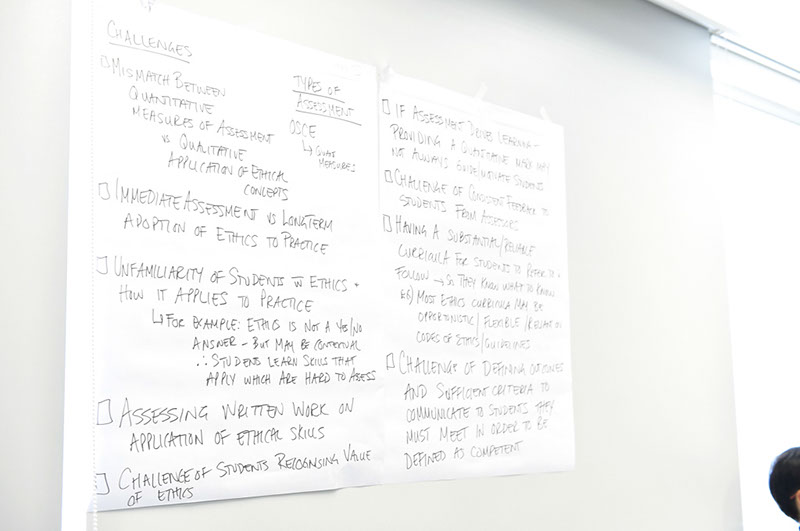 CHALLENGES
□ MISMATCH BETWEEN
QUANTITATIVE
MEASURES OF ASSESSMENT
VS QUALITATIVE
APPLICATION OF ETHICAL
CONCEPTS
TYPES OF
ASSESSMENT
OSCE
↳ QUANT
MEASURES
□ IMMEDIATE ASSESSMENT VS LONGTERM
ADOPTION OF ETHICS TO PRACTICE
□ UNFAMILIARITY OF STUDENTS W ETHICS +
HOW IT APPLIES TO PRACTICE
↳ FOR EXAMPLE: ETHICS IS NOT A YES/NO
ANSWER - BUT MAY BE CONTEXTUAL
∴ STUDENTS LEARN SKILLS THAT
APPLY WHICH ARE HARD TO ASSESS
□ ASSESSING WRITTEN WORK ON
APPLICATION OF ETHICAL SKILLS
□ CHALLENGE OF STUDENTS RECOGNISING VALUE
OF ETHICS
□ IF ASSESSMENT DRIVES LEARNING -
PROVIDING A QUANTITATIVE MARK MAY
NOT ALWAYS GUIDE/MOTIVATE STUDENTS
□ CHALLENGE OF CONSISTENT FEEDBACK TO
STUDENTS FROM ASSESSORS
□ HAVING A SUBSTANTIAL/RELIABLE
CURRICULA FOR STUDENTS TO REFER TO +
FOLLOW → SO THEY KNOW WHAT TO KNOW
EG) MOST ETHICS CURRICULA MAY BE
OPPORTUNISTIC / FLEXIBLE / RELIANT ON
CODES OF ETHICS/GUIDELINES
□ CHALLENGE OF DEFINING OUTCOMES
AND SUFFICIENT CRITERIA TO
COMMUNICATE TO STUDENTS THEY
MUST MEET IN ORDER TO BE
DEFINED AS COMPETENT